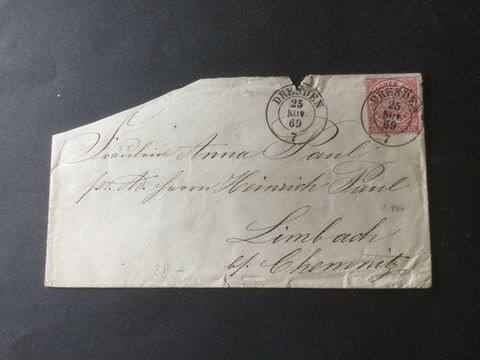 DRESDEN
25
NOV
69
7
DRESDEN
25
NOV
69
7
Fräulein Anna Paul
pr. Ad. Herrn Heinrich Paul
Limbach
b/. Chemnitz
28.-